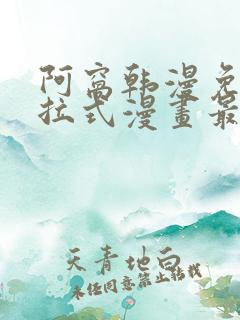 阿窩韩漫免
拉式漫畫最
天青地白
未经同意禁止转载